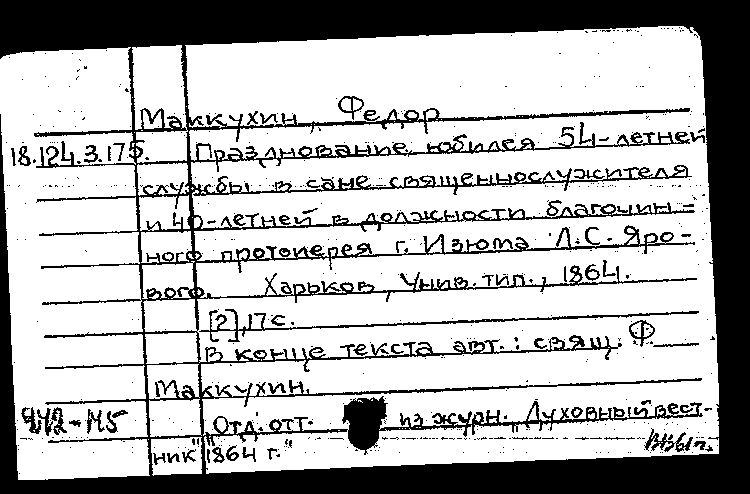 Маккухин, Федор
18.124.3.175. Празднование юбилея 54-летней
службы в сане священнослужителя
и 40-летней в должности благочин=
ного протоиерея г. Изюма Л.С. Яро-
вого. Харьков, Унив. тип., 1864.
[2], 17 с.
В конце текста авт.: свящ. Ф
Маккухин.
Отд. отт. из журн. „Духовный вест-
ник" „1864 г."